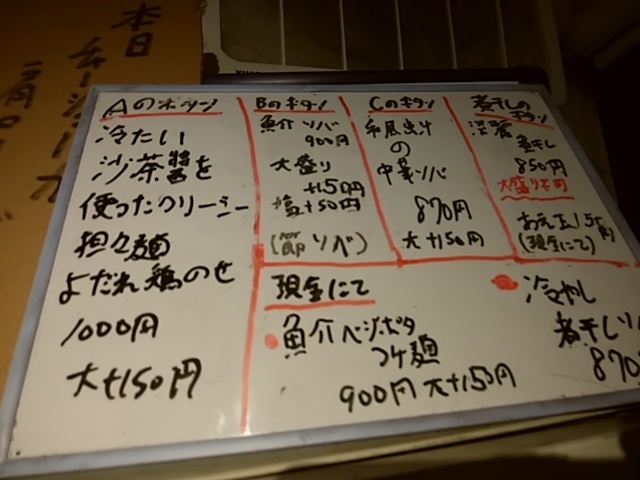 本日
Aのボタン
冷たい
沙茶醤を
使ったクリーミー
担々麺
よだれ鶏のせ
1000円
大+150円
Bのボタン
魚介ソバ
900円
大盛り
+150円
塩+50円
(節ソバ)
Cのボタン
和風出汁
の
中華ソバ
870円
大+150円
煮干しの
ボタン
淡麗
煮干し
850円
大盛り不可
あえ玉
(現金にて)
現金にて
魚介ベジポタ
つけ麺
900円 大+150円
冷やし
煮干しソバ
870